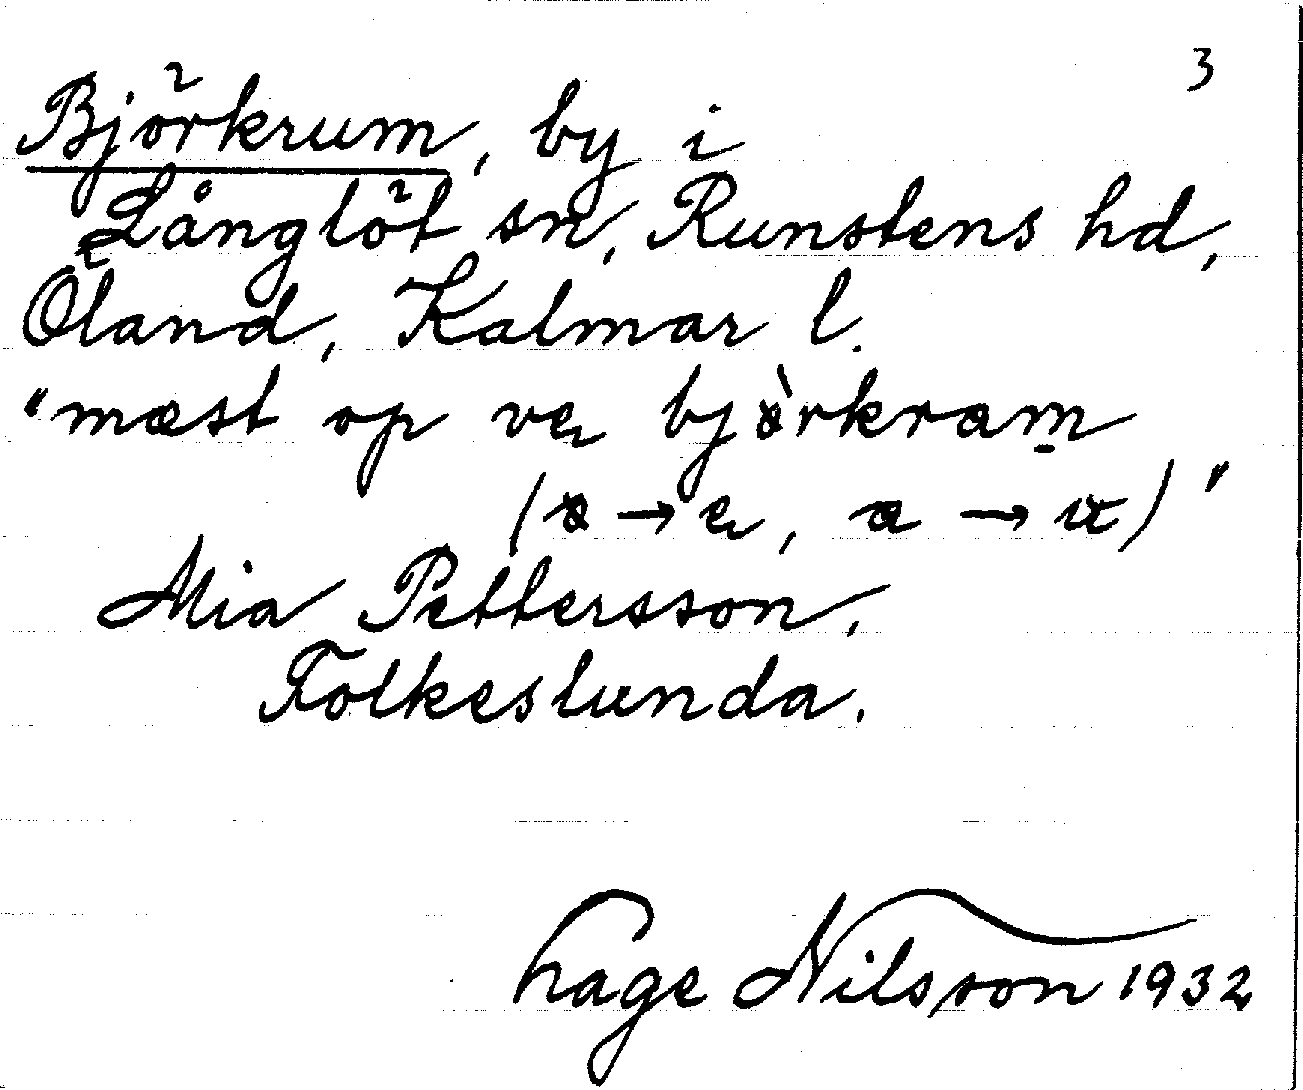 3
Björkrum, by i
Långlöt sn, Runstens hd,
Öland, Kalmar l.
"mæst op ve björkram
(ɵ → e, a → )"
Mia Pettersson,
Folkeslunda.
hage Nilsson 1932